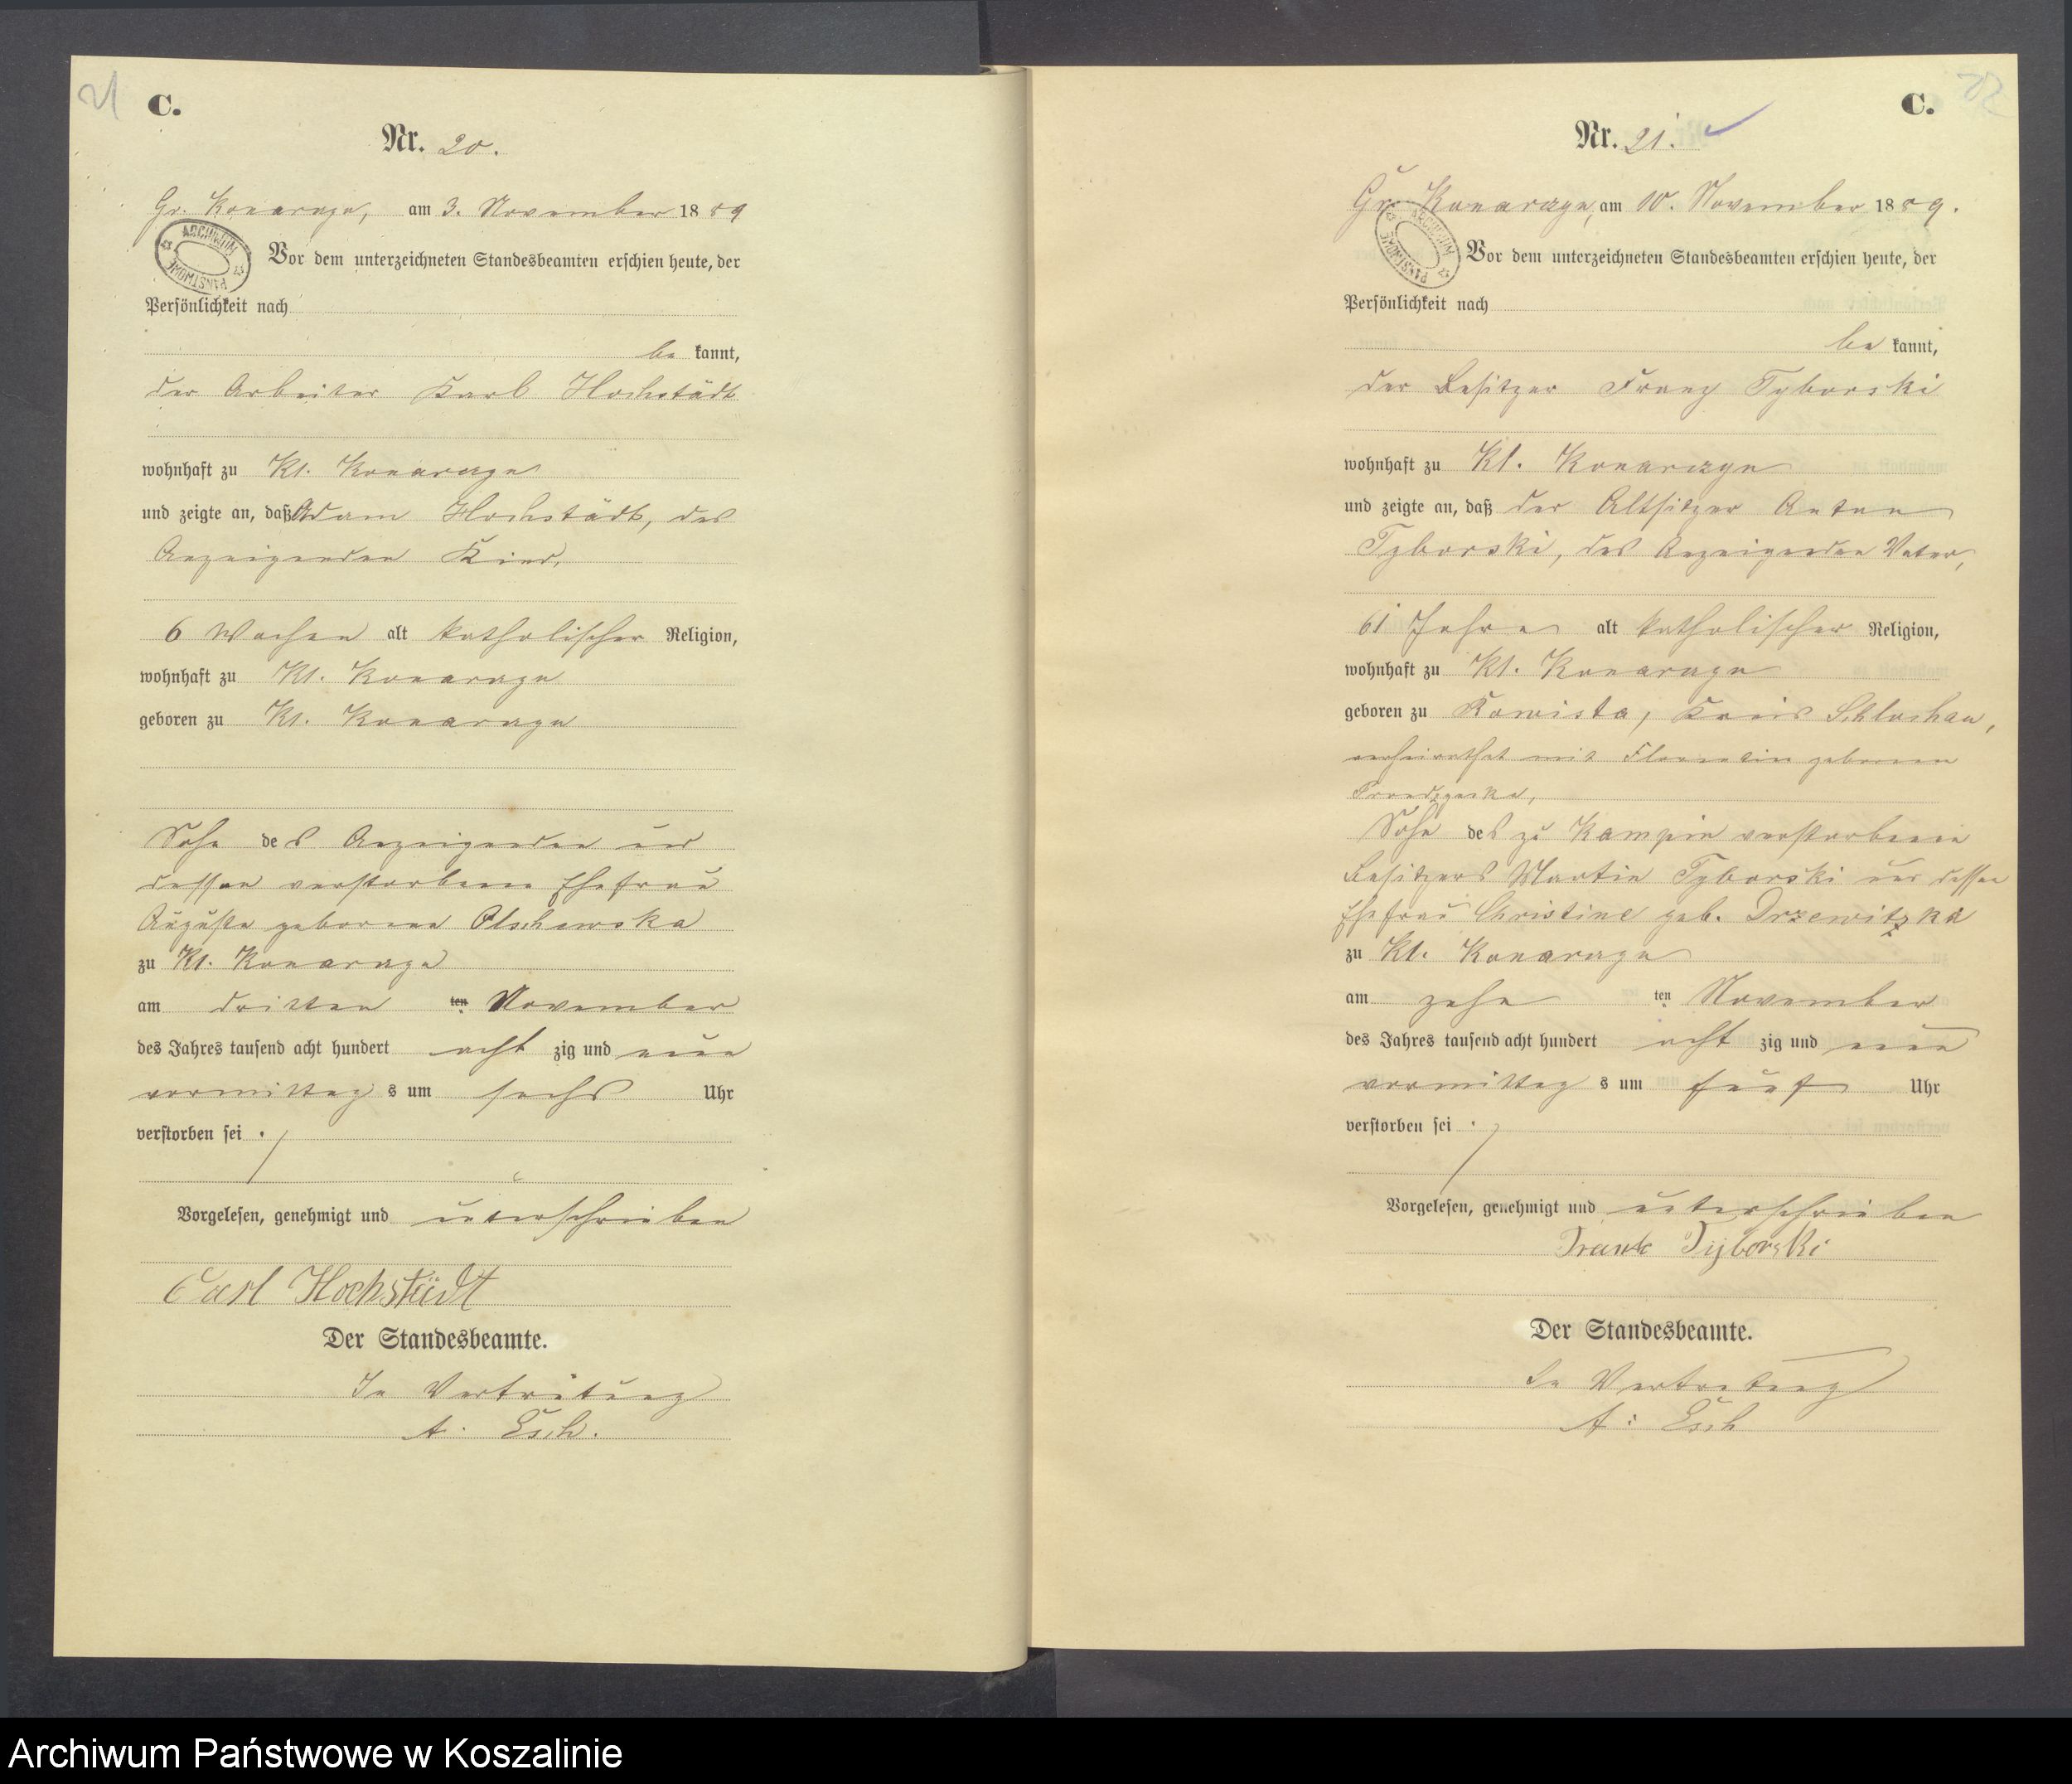 C.
Nr. 20.
Gr. Konarczyn, am 3. November 1889
ARCHIWUM PAŃSTWOWE
Vor dem unterzeichneten Standesbeamten erschien heute, der
Persönlichkeit nach
be kannt,
der Arbeiter Karl Hochstädt
wohnhaft zu Kl. Konarczyn
und zeigte an, daß Adam Hochstädt, des
Anzeigenden Kind,
6 Wochen alt katholischer Religion,
wohnhaft zu Kl. Konarczyn
geboren zu Kl. Konarczyn
Sohn des Anzeigenden und
dessen verstorbene Ehefrau
Auguste geborene Olschewska
zu Kl. Konarczyn
am dritten ten November
des Jahres tausend acht hundert acht zig und neun
vormittag s um sechs Uhr
verstorben sei.
Vorgelesen, genehmigt und unterschrieben
Carl Hochstädt
Der Standesbeamte.
In Vertretung
A. Esch.
C.
Nr. 21.
Gr. Konarczyn, am 10. November 1889.
ARCHIWUM PAŃSTWOWE
Vor dem unterzeichneten Standesbeamten erschien heute, der
Persönlichkeit nach
be kannt,
der Besitzer Franz Tyborski
wohnhaft zu Kl. Konarczyn
und zeigte an, daß der Altsitzer Anton
Tyborski, des Anzeigenden Vater,
61 Jahre alt katholischer Religion,
wohnhaft zu Kl. Konarczyn
geboren zu Kreis Schlochau,
verheirathet mit geborene
Sohn des zu Kampin verstorbenen
Besitzers Martin Tyborski und dessen
Ehefrau Christine geb. Drzewitzka
zu Kl. Konarczyn
am zehn ten November
des Jahres tausend acht hundert acht zig und neun
vormittag s um fünf Uhr
verstorben sei.
Vorgelesen, genehmigt und unterschrieben
Tyborski
Der Standesbeamte.
In Vertretung
A. Esch
Archiwum Państwowe w Koszalinie